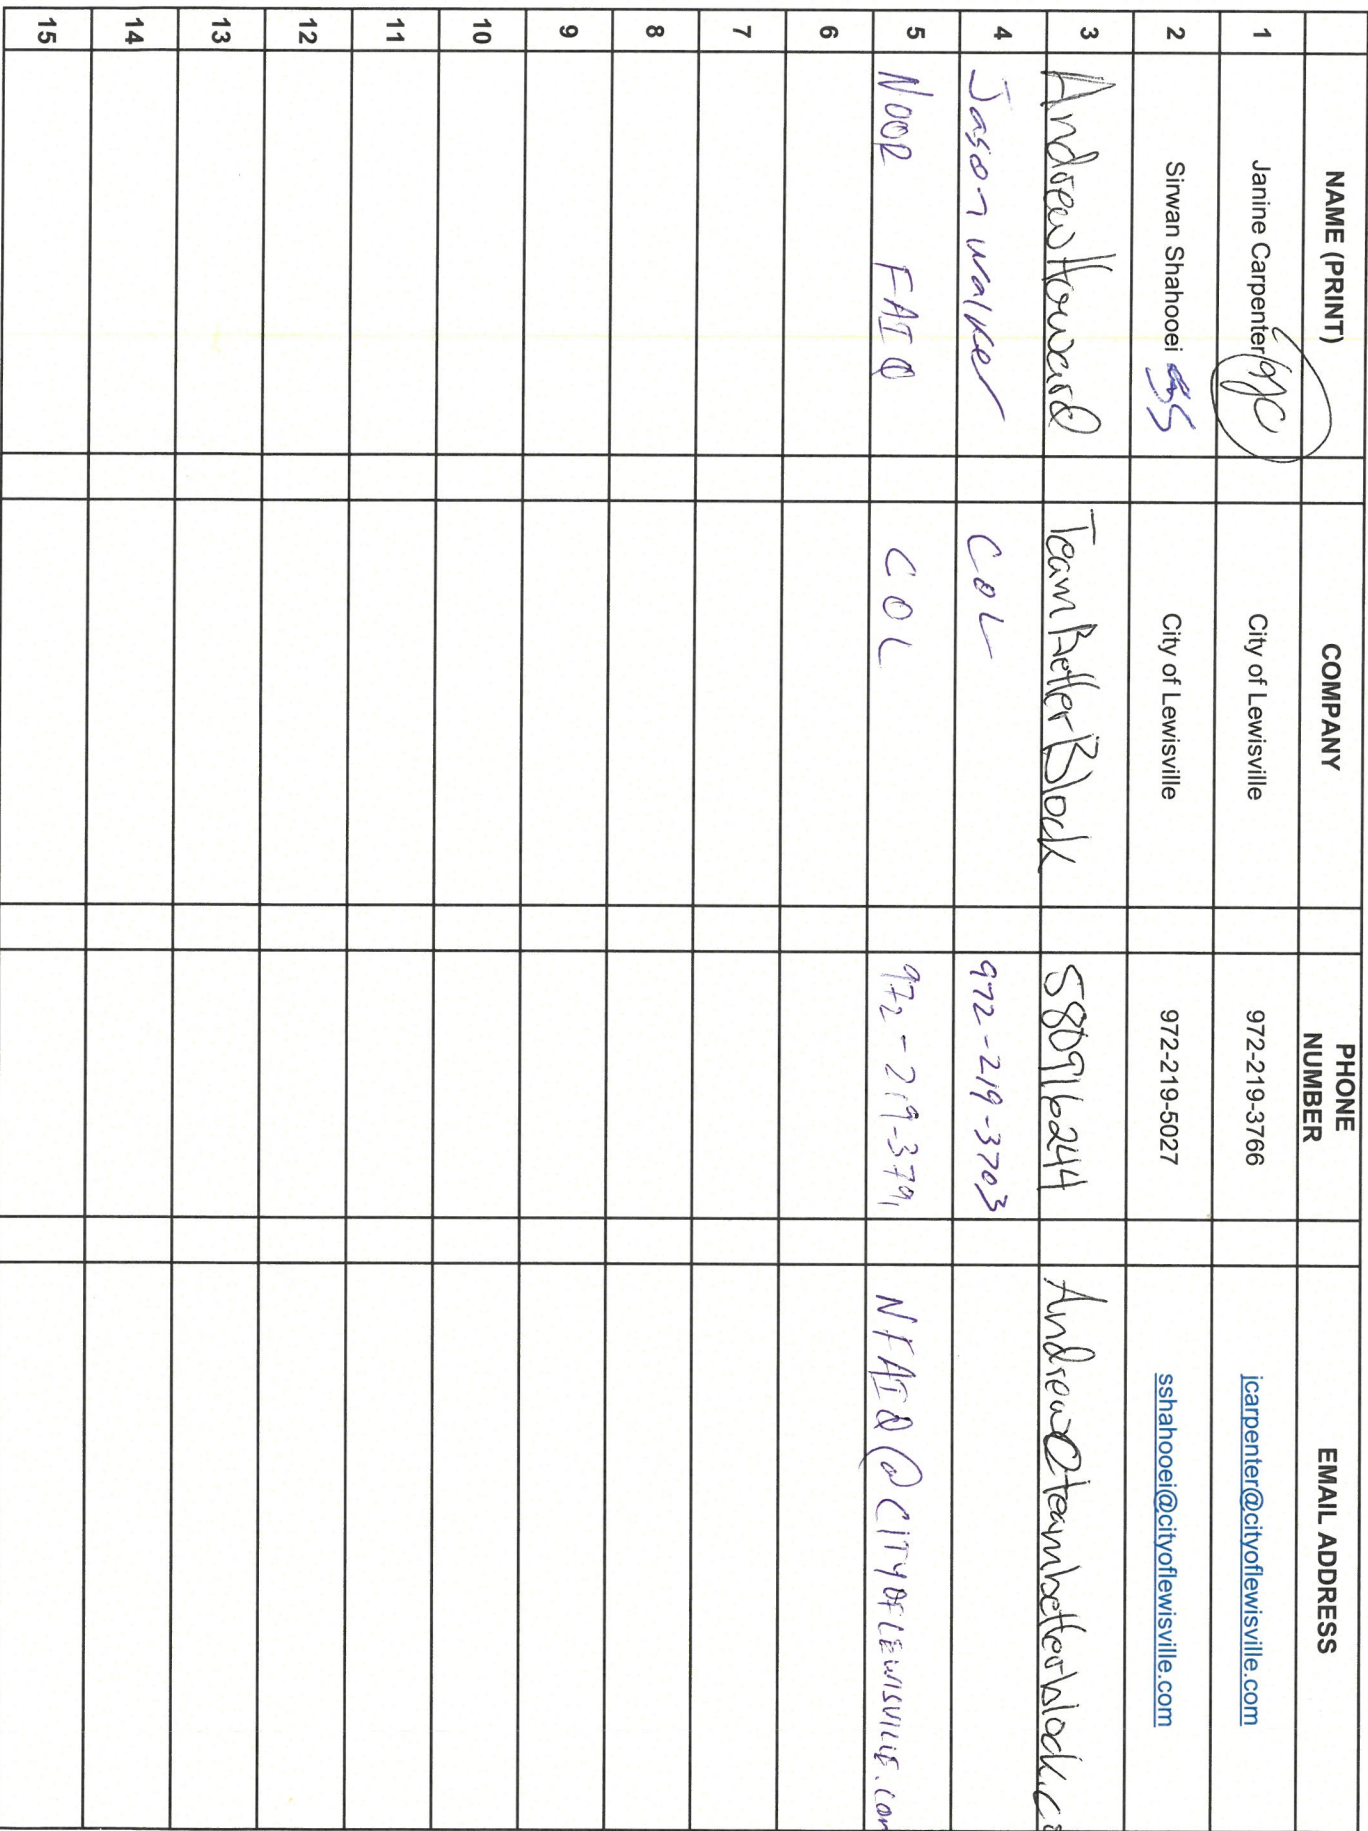 NAME (PRINT) COMPANY PHONE NUMBER EMAIL ADDRESS
1 Janine Carpenter JC City of Lewisville 972-219-3766 jcarpenter@cityoflewisville.com
2 Sirwan Shahooei SS City of Lewisville 972-219-5027 sshahooei@cityoflewisville.com
3 Andrew Howard Team Better Block 5809116244 Andrew@teambetterblock.co
4 Jason Walker COL 972-219-3703
5 NOOR FAIQ COL 972-219-3791 NFAIQ@CITYOFLEWISVILLE.COM
6
7
8
9
10
11
12
13
14
15